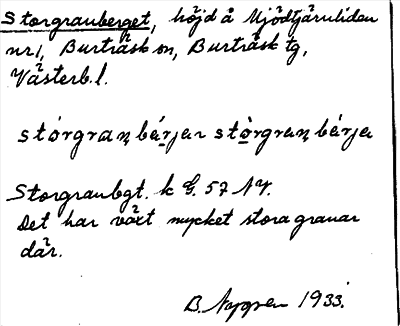 Storgranberget, höjd å Mjödtjärnliden
nr 1, Burträsk sn, Burträsk tg,
Västerb. l.
stórgraṇ bárjar stò̱rgraṇ bárja
Storgranbgt. k G. 57 NV.
Det har växt mycket stora granar
där.
B. Nygren 1933.